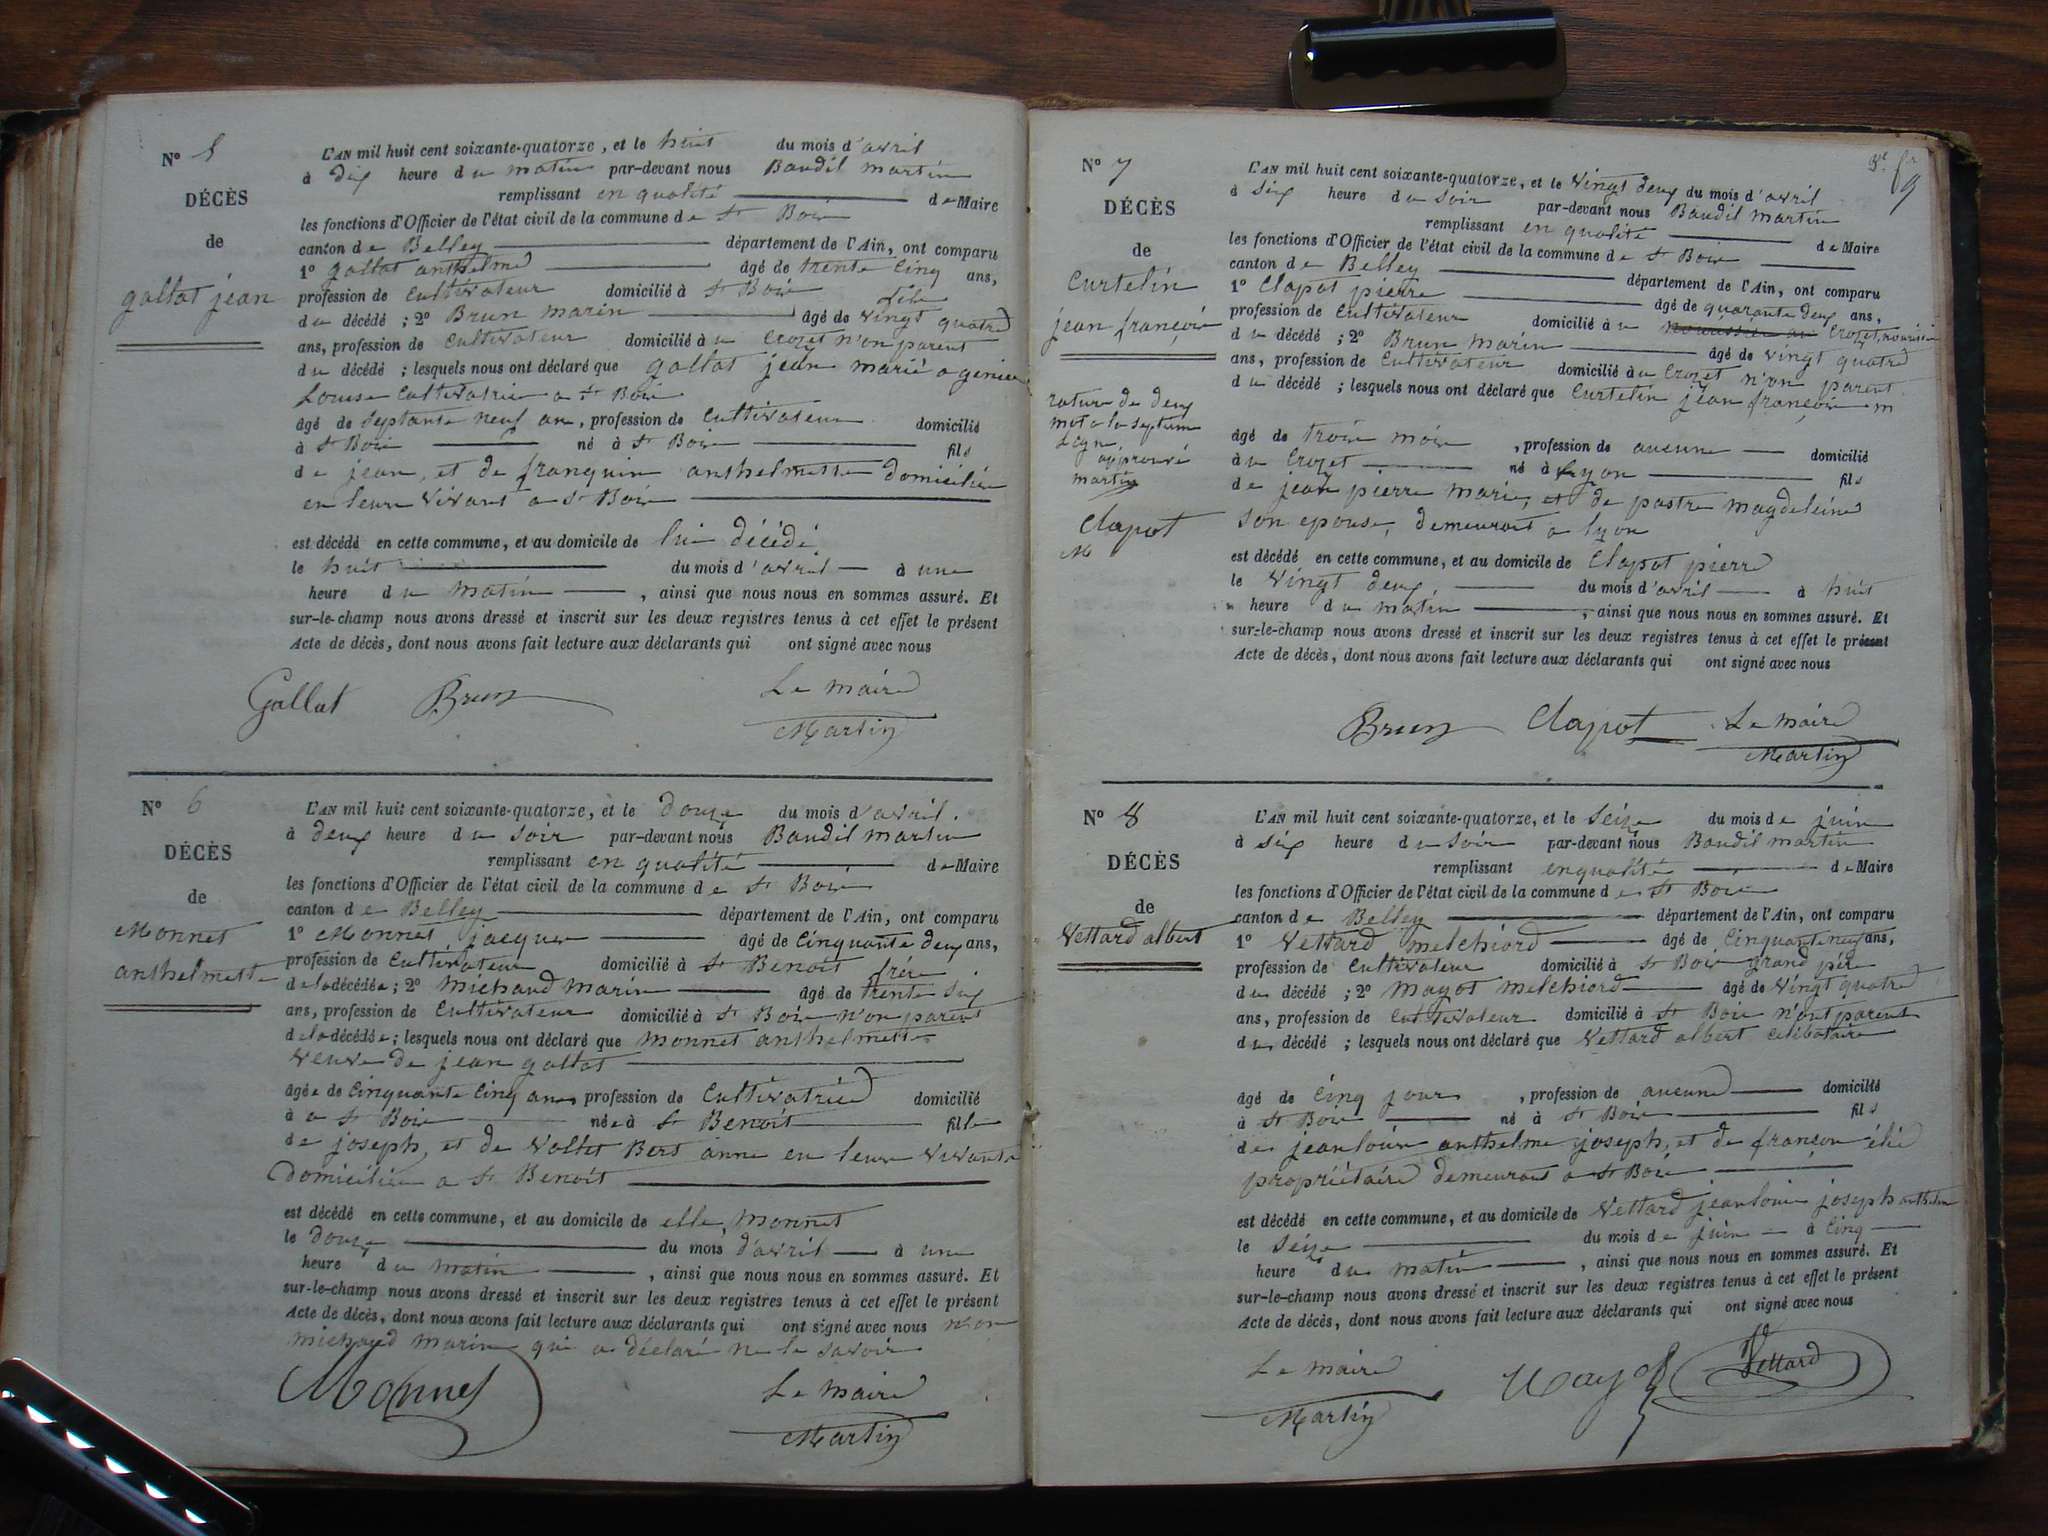 N° 5
DÉCÈS
de
gallat jean
L'AN mil huit cent soixante-quatorze, et le huit du mois d'avril
à dix heure du matin par-devant nous Baudil martin
remplissant en qualité de Maire
les fonctions d'Officier de l'état civil de la commune de St Bois
canton de Belley département de l'Ain, ont comparu
1° gallat anthelme âgé de trente cinq ans,
profession de cultivateur domicilié à St Bois fils
du décédé ; 2° Brun marin âgé de vingt quatre
ans, profession de cultivateur domicilié à u Crozet n'on parent
du décédé ; lesquels nous ont déclaré que gallat jean marié a
Louise Cultivatrice a St Bois
âgé de septante neuf an, profession de Cultivateur domicilié
à St Bois né à St Bois fils
de jean, et de franquin anthelmette domicilié
en leur vivant a St Bois
est décédé en cette commune, et au domicile de lui décédé
le huit du mois d'avril à une
heure du matin, ainsi que nous nous en sommes assuré. Et
sur-le-champ nous avons dressé et inscrit sur les deux registres tenus à cet effet le présent
Acte de décès, dont nous avons fait lecture aux déclarants qui ont signé avec nous
Gallat Brun Le maire
Martin
N° 6
DÉCÈS
de
Monnet
anthelmette
L'AN mil huit cent soixante-quatorze, et le douze du mois d'avril.
à deux heure du soir par-devant nous Baudil martin
remplissant en qualité de Maire
les fonctions d'Officier de l'état civil de la commune de St Bois
canton de Belley département de l'Ain, ont comparu
1° Monnet jacques âgé de cinquante deux ans,
profession de Cultivateur domicilié à St Benoit frère
de la décédée; 2° michaud marin âgé de trente six
ans, profession de Cultivateur domicilié à St Bois n'on parent
de la décédée; lesquels nous ont déclaré que monnet anthelmette
veuve de jean gallat
âgée de cinquante cinq ans, profession de Cultivatrice domicilié
à a St Bois née à St Benoit fille
de joseph, et de Vollet Bert anne en leur vivant
Domicilié a St Benoit
est décédé en cette commune, et au domicile de elle, monnet
le douze du mois d'avril à une
heure du matin, ainsi que nous nous en sommes assuré. Et
sur-le-champ nous avons dressé et inscrit sur les deux registres tenus à cet effet le présent
Acte de décès, dont nous avons fait lecture aux déclarants qui ont signé avec nous n'on
michaud marin qui a déclaré ne le savoir
Monnet Le maire
Martin
9
N° 7
DÉCÈS
de
Curtelin
jean françois
rature de deux
mot a la septieme
approuvé
martin
Clapot
M
L'AN mil huit cent soixante-quatorze, et le vingt deux du mois d'avril
à six heure du soir par-devant nous Baudil martin
remplissant en qualité de Maire
les fonctions d'Officier de l'état civil de la commune de St Bois
canton de Belley département de l'Ain, ont comparu
1° Clapot pierre âgé de quarante deux ans,
profession de Cultivateur domicilié à u nourissier au Crozet, nourissier
du décédé ; 2° Brun marin âgé de vingt quatre
ans, profession de Cultivateur domicilié à u Crozet n'on parent
du décédé ; lesquels nous ont déclaré que Curtelin jean françois
âgé de trois mois, profession de aucune domicilié
à u Crozet né à Lyon fils
de jean pierre marie, et de pastre magdeleine
son epouse, demeurant a lyon
est décédé en cette commune, et au domicile de Clapot pierre
le vingt deux du mois d'avril à huit
heure du matin, ainsi que nous nous en sommes assuré. Et
sur-le-champ nous avons dressé et inscrit sur les deux registres tenus à cet effet le présent
Acte de décès, dont nous avons fait lecture aux déclarants qui ont signé avec nous
Brun Clapot Le maire
Martin
N° 8
DÉCÈS
de
Vettard albert
L'AN mil huit cent soixante-quatorze, et le seize du mois de juin
à six heure du soir par-devant nous Baudil martin
remplissant en qualité de Maire
les fonctions d'Officier de l'état civil de la commune de St Bois
canton de Belley département de l'Ain, ont comparu
1° Vettard melchiord âgé de cinquante neuf ans,
profession de Cultivateur domicilié à St Bois grand père
du décédé ; 2° mayot melchiord âgé de vingt quatre
ans, profession de Cultivateur domicilié à St Bois n'ont parent
du décédé ; lesquels nous ont déclaré que Vettard albert célibataire
âgé de cinq jours, profession de aucune domicilié
à St Bois né à St Bois fils
de jean louis anthelme joseph, et de françon
propriétaire demeurant a St Bois
est décédé en cette commune, et au domicile de Vettard jean louis joseph anthelme
le seize du mois de juin à cinq
heure du matin, ainsi que nous nous en sommes assuré. Et
sur-le-champ nous avons dressé et inscrit sur les deux registres tenus à cet effet le présent
Acte de décès, dont nous avons fait lecture aux déclarants qui ont signé avec nous
Le maire Mayot Vettard
Martin